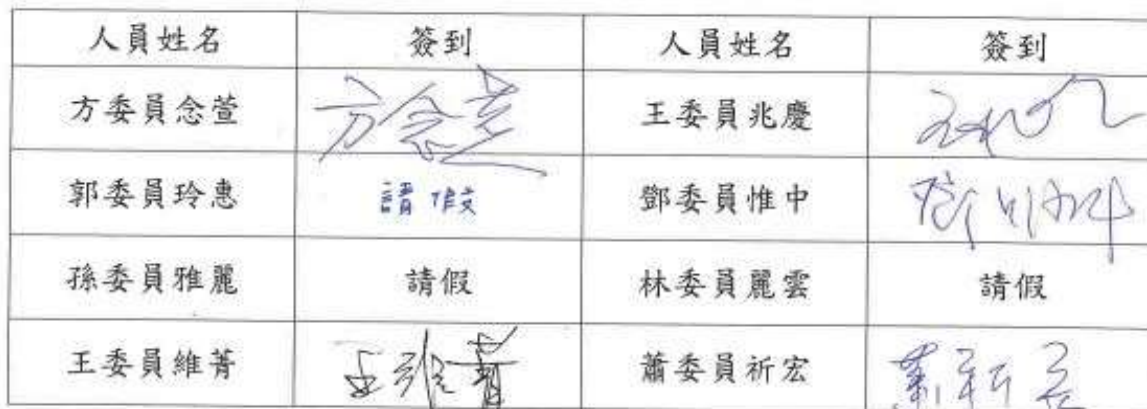 人員姓名 簽到 人員姓名 簽到
方委員念萱 方念萱 王委員兆慶
郭委員玲惠 請假 鄧委員惟中
孫委員雅麗 請假 林委員麗雲 請假
王委員維菁 王維菁 蕭委員祈宏